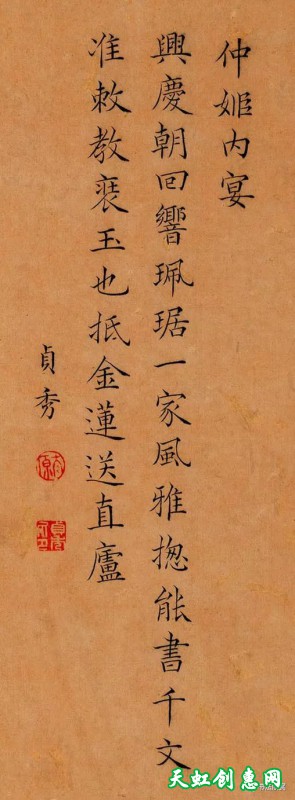 仲姬内宴
興慶朝回響珮琚一家風雅揔能書千文
准敕教裝玉也抵金蓮送直廬
貞秀
天虹创惠网